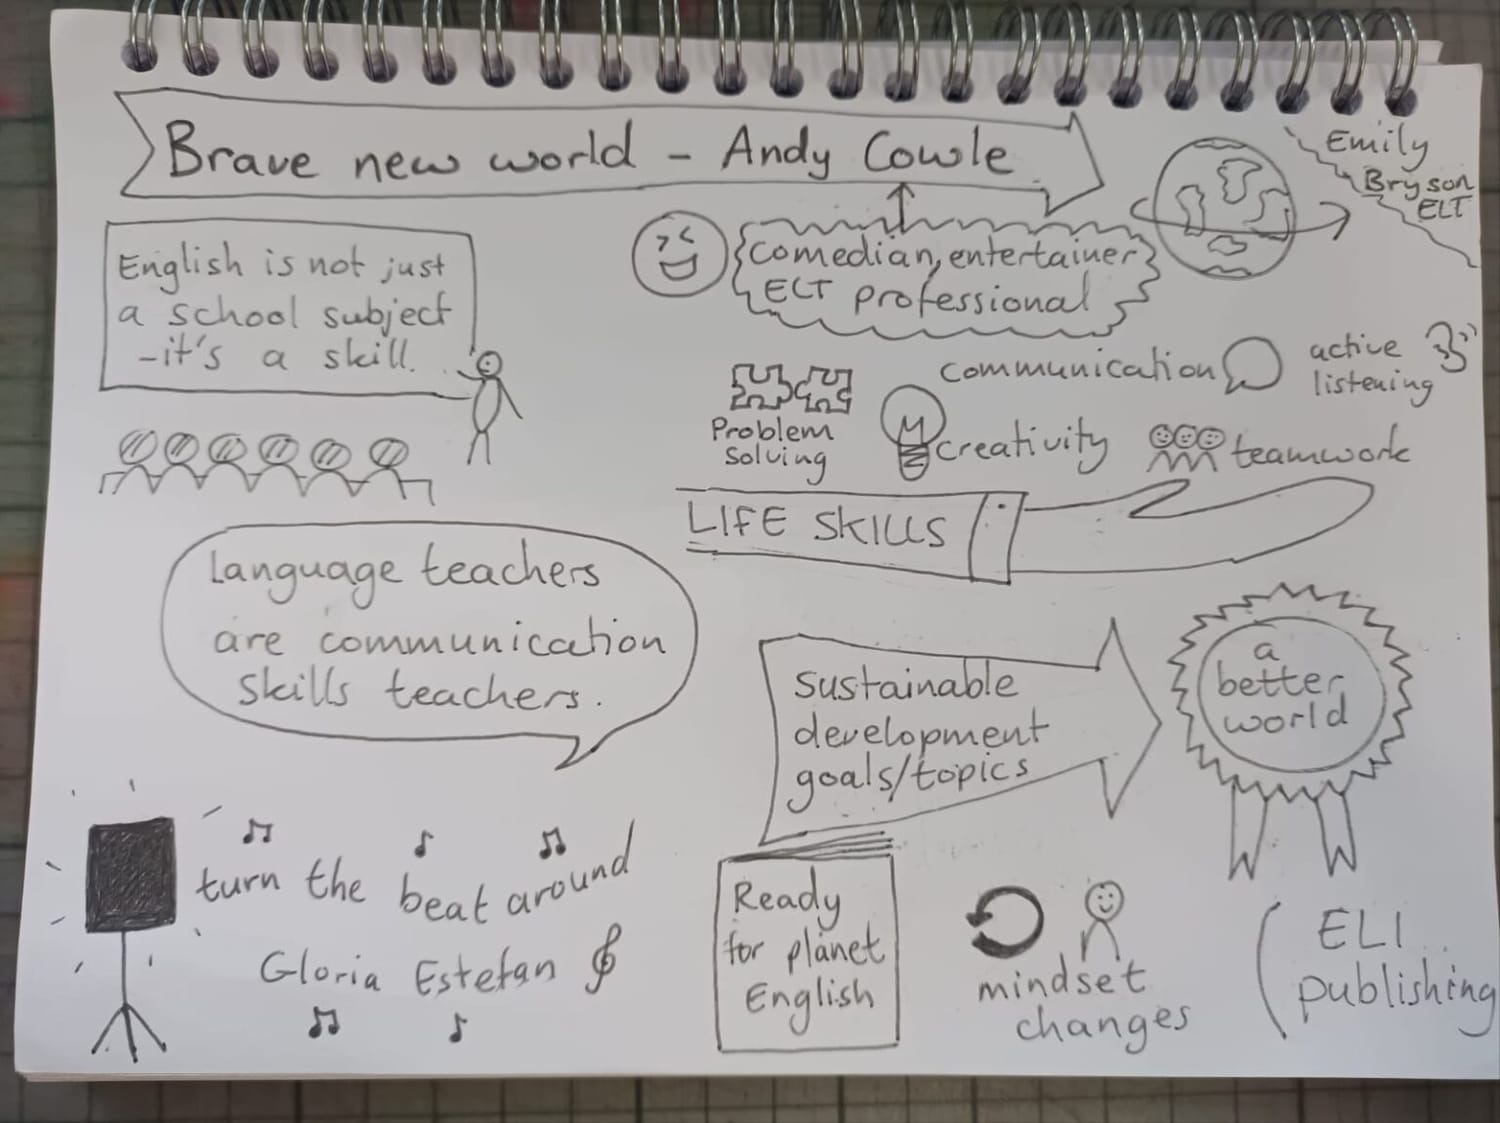 Brave new world - Andy Cowle
Emily
Bryson
ELT
Comedian, entertainer
ELT professional
English is not just
a school subject
-it's a skill.
communication
active
listening
Problem
Solving
creativity
teamwork
LIFE SKILLS
Language teachers
are communication
skills teachers.
Sustainable
development
goals/topics
a
better
world
turn the beat around
Gloria Estefan
Ready
for planet
English
mindset
changes
ELI
publishing